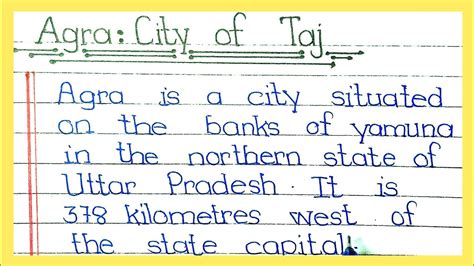 Agra: City of Taj
Agra is a city situated
on the banks of yamuna
in the northern state of
Uttar Pradesh. It is
378 kilometres west of
the state capital.